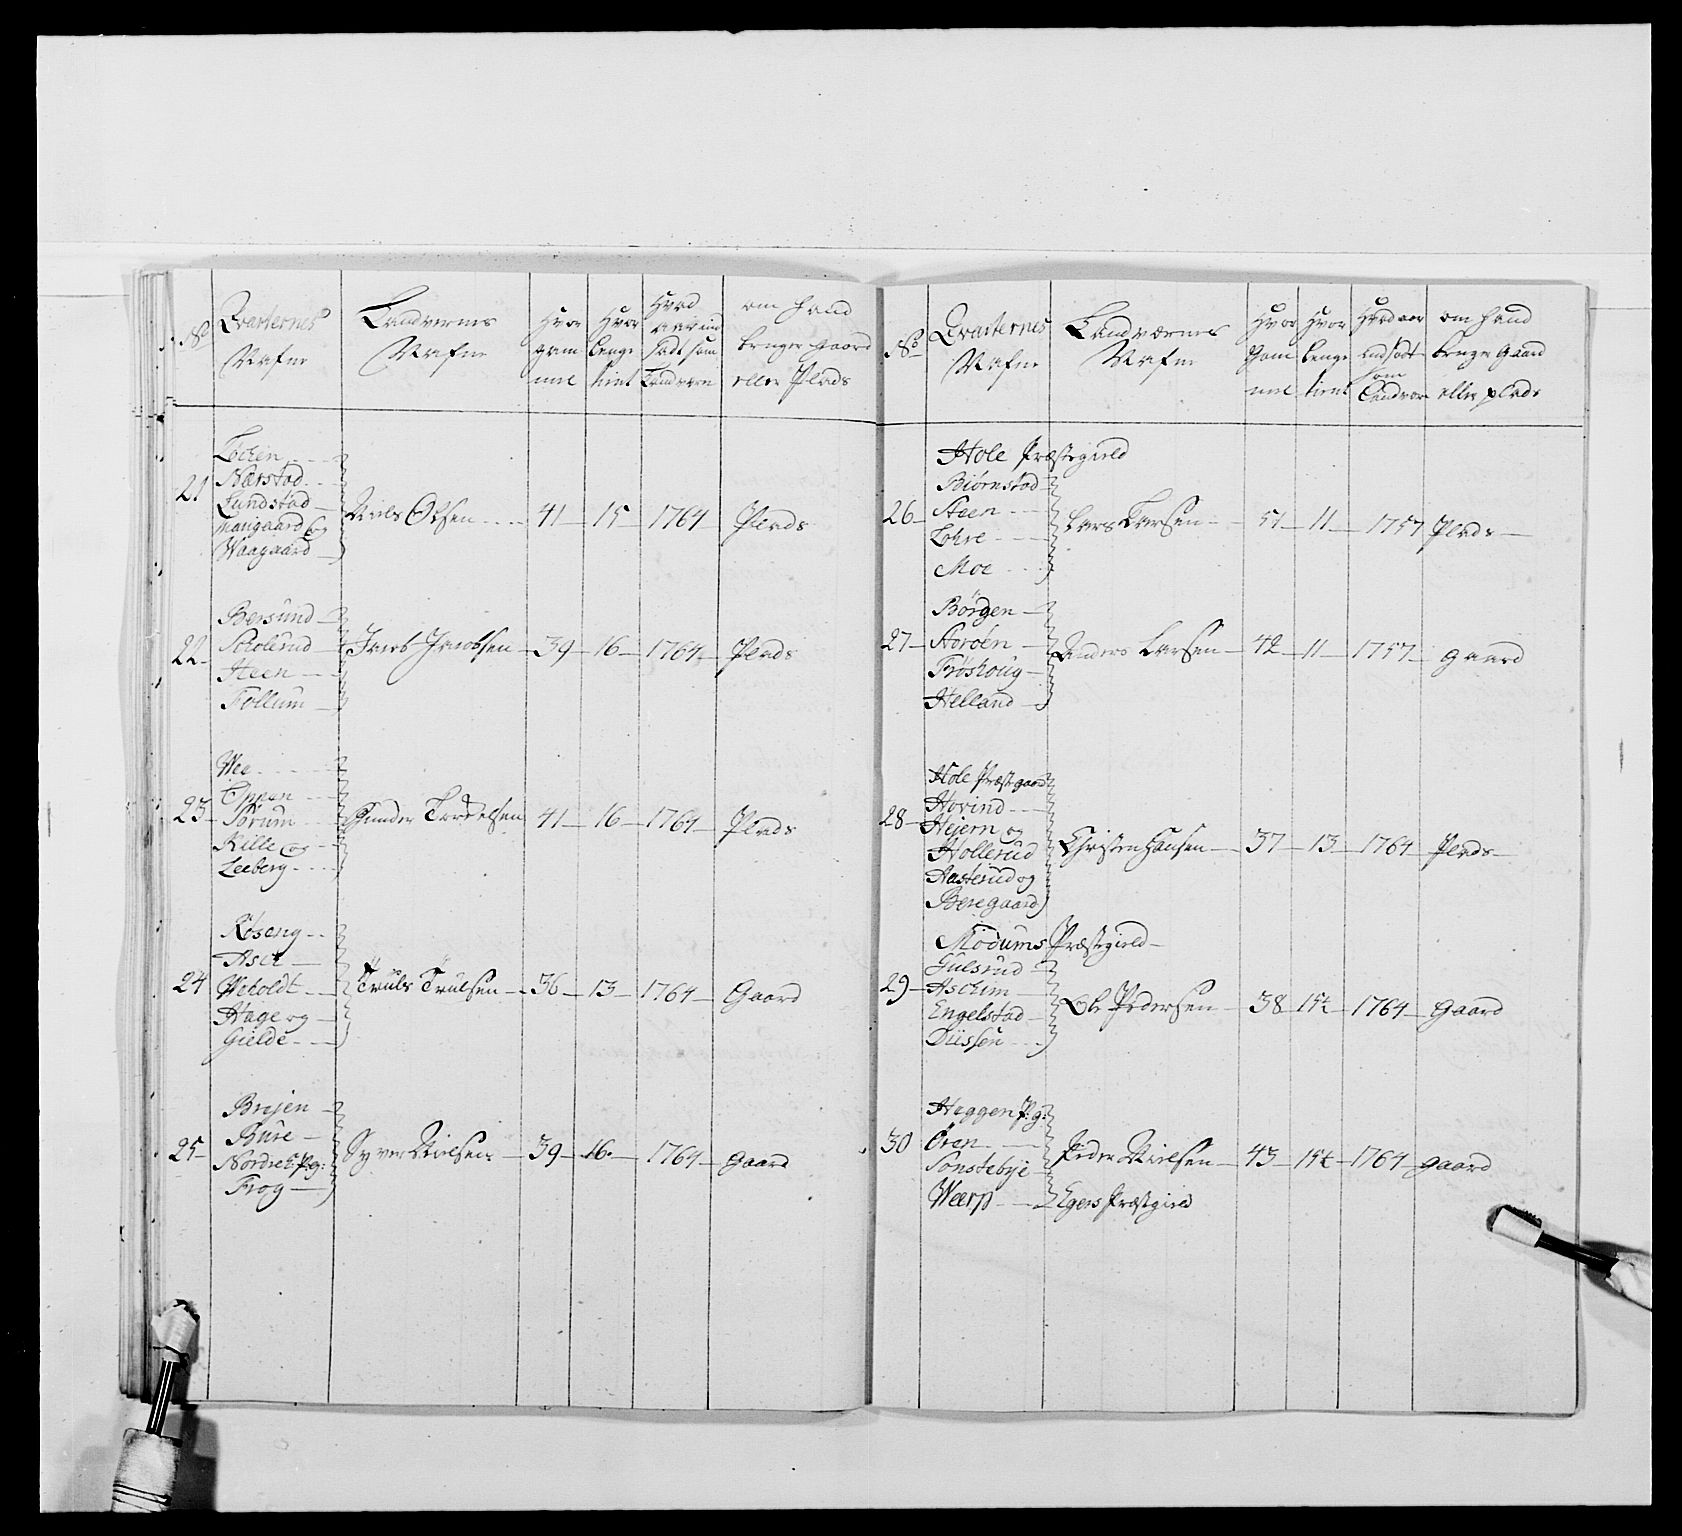 No
Qvarternes
Nafne
Landvernes
Nafne
Hvor
gam
mel
Hvor
lenge
tient
Hvad
aar ind
sadt som
Landvern
om hand
bruger gaard
eller Plads
21
Løchen
Nærstad
Lundstad
Mougaard Og
Waagaard
Niels Olsen 41 15 1764 Plads
22
Bersund
Scholerud
Heen
Follum
Jacob Jacobsen 39 16 1764 Plads
23
Wee
Oppen
Sørum
Kille og
Leeberg
Gunder 41 16 1764 Plads
24
Røseng
Ask
Weholdt
Hage og
Gielde
Truls Trulsen 36 13 1764 Gaard
25
Brejen
Bure
Prg:
Frog
Syver Nielsen 39 16 1764 gaard
No
Qvarternes
Nafne
Landvernes
Nafne
Hvor
Gam
mel
Hvor
lenge
tient
Hvad aar
indsadt
som
Landvær
om hand
bruger Gaard
eller plads
Hole Præstegield
26
Biørnstad
Steen
Løhre
Moe
Lars Larsen 51 11 1757 Plads
27
Börgen
Storöen
Frøshoug
Helland
Anders Larsen 42 11 1757 gaard
28
Hole Præstgaard
Hovind
Hejern og
Hollerud
Aasterud og
Beregaard
Christen Hansen 37 13 1764 Plads
Modums Præstegield
29
Gulsrud
Aschim
Engelstad
Diissen
Ole Pedersen 38 15½ 1764 Gaard
30
Heggen P:g:
Øren
Sønstebye
Weerp
Peder Nielsen 43 15½ 1764 gaard
Egers Præstegield